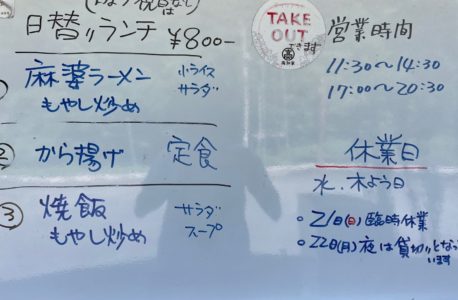 日替りランチ ¥800-
麻婆ラーメン 小ライス
もやし炒め サラダ
② から揚げ 定食
③ 焼飯 サラダ
もやし炒め スープ
TAKE
OUT
できます
営業時間
11:30〜14:30
17:00〜20:30
休業日
水、木よう日
○21日(日)臨時休業
○22日(月)夜は貸切りとなって
います